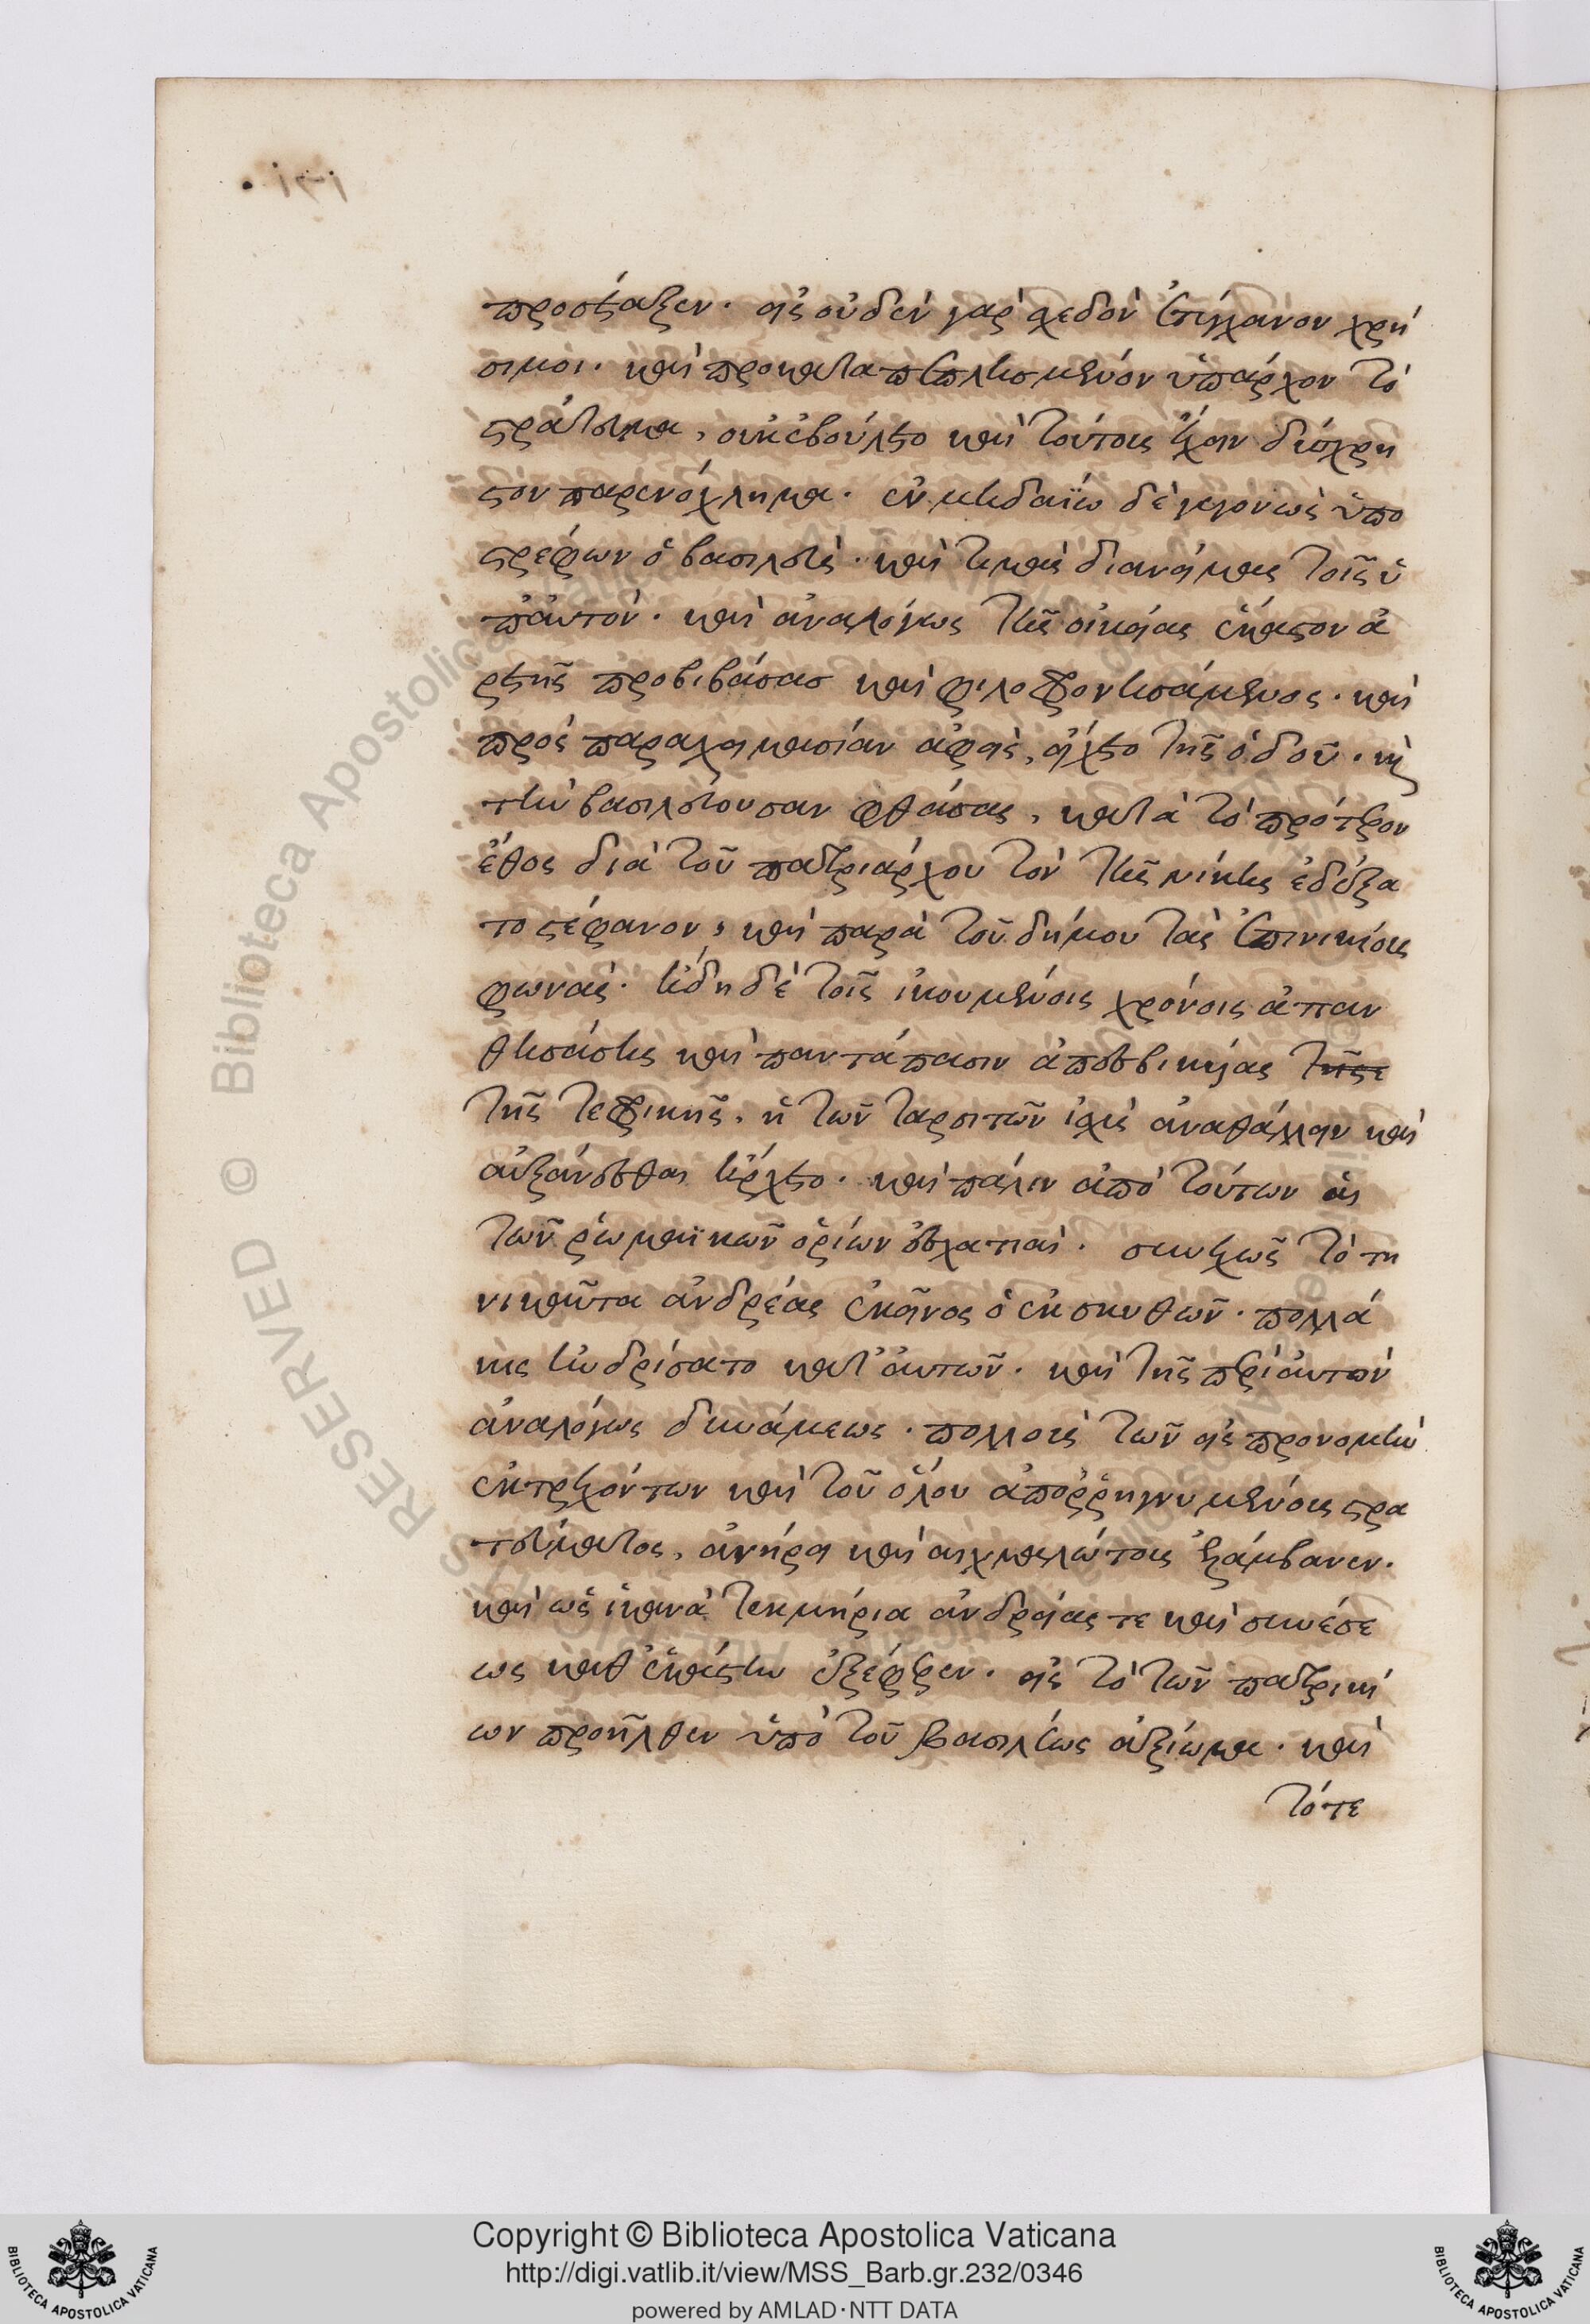 προσέταξεν. εἰς οὐδὲν γὰρ σχεδὸν ἐτύγχανον χρή
σιμοι. καὶ προκαταπεπλησμένον ὑπάρχον τὸ
στράτευμα, οὐκ ἐβούλετο καὶ τούτοις ἔχειν δύσχρη
στον παρενόχλημα. ἐν μηδαΐω δὲ γεγονὼς ὑπο
στρέφων ὁ βασιλεὺς. καὶ τιμὰς διανείμας τοῖς ὑ
π' αὐτὸν. καὶ ἀναλόγως τῆς οἰκείας ἕκαστον ἀ
ρετῆς προβιβάσας καὶ φιλοφρονησάμενος. καὶ
πρὸς παραχειμασίαν ἀφεὶς, εἴχετο τῆς ὁδοῦ. καὶ
τὴν βασιλεύουσαν φθάσας, κατὰ τὸ πρότερον
ἔθος διὰ τοῦ πατριάρχου τὸν τῆς νίκης ἐδέξα
το στέφανον, καὶ παρὰ τοῦ δήμου τὰς ἐπινικίους
φωνάς. ἤδη δὲ τοῖς ἱκουμένοις χρόνοις ἀπαν
θησάσης καὶ παντάπασιν ἀποσβικείας τῆς τε
τῆς τεφρικῆς, ἡ τῶν ταρσιτῶν ἰσχὺς ἀναθάλλειν καὶ
αὐξάνεσθαι ἤρχετο. καὶ πάλιν ἀπὸ τούτων αἱ
τῶν ῥωμαϊκῶν ὁρίων ἐσχατιαὶ. συνεχῶς τὸ τη
νικαῦτα ἀνδρέας ἐκεῖνος ὁ ἐκ σκυθῶν. πολλά
κις ἠνδρίσατο κατ' αὐτῶν. καὶ τῆς περὶ αὐτὸν
ἀναλόγως δυνάμεως. πολλοὺς τῶν εἰς προνομὴν
ἐκτρεχόντων καὶ τοῦ ὅλου ἀποῤῥηγνυμένους στρα
τεύματος, ἀνῄρει καὶ αἰχμαλώτους ἐλάμβανεν.
καὶ ὡς ἱκανὰ τεκμήρια ἀνδρείας τε καὶ συνέσε
ως καθ' ἑκάστην ἐξέφερεν. εἰς τὸ τῶν πατρικί
ων προῆλθεν ὑπὸ τοῦ βασιλέως ἀξίωμα. καὶ
τότε
Copyright © Biblioteca Apostolica Vaticana
http://digi.vatlib.it/view/MSS_Barb.gr.232/0346
powered by AMLAD·NTT DATA